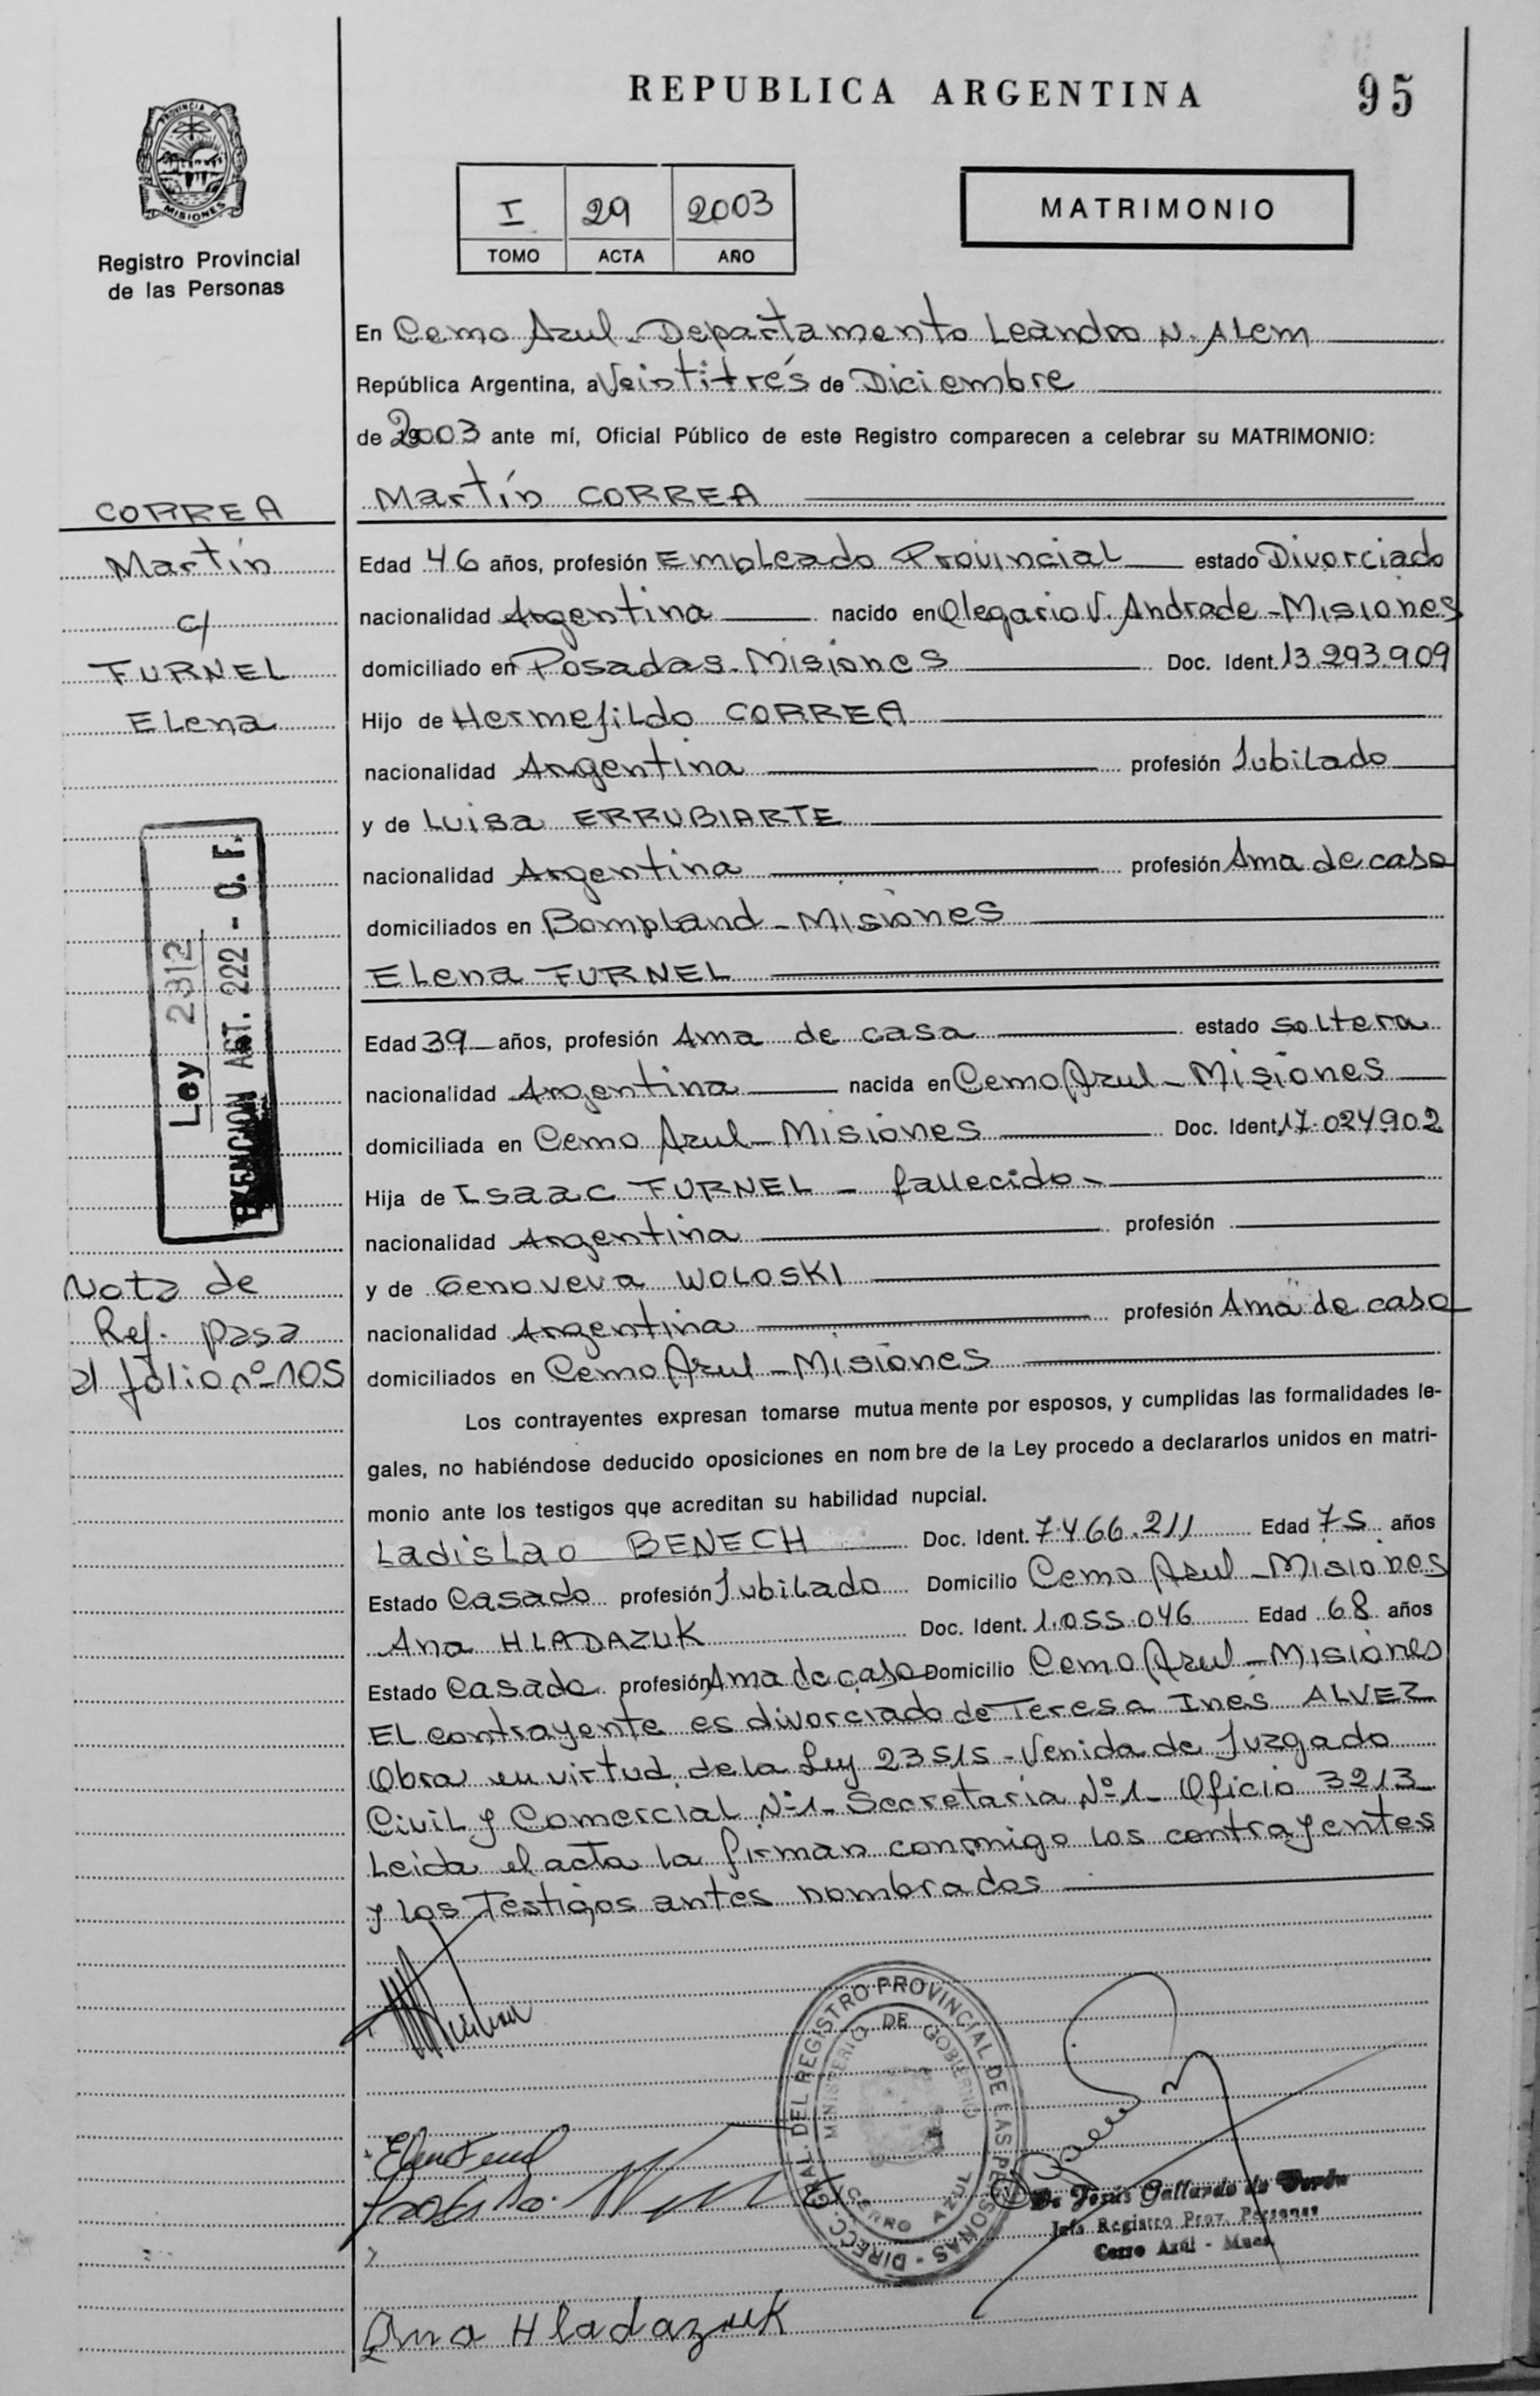 REPUBLICA ARGENTINA
95
PROVINCIA DE
MISIONES
Registro Provincial
de las Personas
I 29 2003
TOMO ACTA AÑO
MATRIMONIO
En Cerro Azul - Departamento Leandro N. ALem
República Argentina, a Veintitrés de Diciembre
de 2003 ante mí, Oficial Público de este Registro comparecen a celebrar su MATRIMONIO:
Martín CORREA
CORREA
Martín
c/
FURNEL
ELena
Edad 46 años, profesión EmpLeado Provincial estado Divorciado
nacionalidad Argentina nacido en Olegario V. Andrade - Misiones
domiciliado en Posadas - Misiones Doc. Ident. 13.293.909
Hijo de Hermefildo CORREA
nacionalidad Argentina profesión Jubilado
y de Luisa ERRUBIARTE
nacionalidad Argentina profesión Ama de casa
domiciliados en Bompland - Misiones
ELena FURNEL
Edad 39 años, profesión Ama de casa estado soltera
nacionalidad Argentina nacida en Cerro Azul - Misiones
domiciliada en Cerro Azul - Misiones Doc. Ident. 17.024.902
Hija de Isaac FURNEL - fallecido -
nacionalidad Argentina profesión
y de Genoveva WOLOSKI
nacionalidad Argentina profesión Ama de casa
domiciliados en Cerro Azul - Misiones
Ley 2312
EXENCION ART. 222 - C. F.
Nota de
Ref. pasa
al folio nº 105
Los contrayentes expresan tomarse mutuamente por esposos, y cumplidas las formalidades le-
gales, no habiéndose deducido oposiciones en nombre de la Ley procedo a declararlos unidos en matri-
monio ante los testigos que acreditan su habilidad nupcial.
LadisLao BENECH Doc. Ident. 7.466.211 Edad 75 años
Estado Casado profesión Jubilado Domicilio Cerro Azul - Misiones
Ana HLADAZUK Doc. Ident. 1.055.046 Edad 68 años
Estado Casada profesión Ama de casa Domicilio Cerro Azul - Misiones
EL contrayente es divorciado de Teresa Inés ALVEZ
Obra en virtud de la Ley 23515 - Venida de Juzgado
Civil y Comercial Nº 1 - Secretaria Nº 1 - Oficio 3213
Leida el acta la firman conmigo los contrayentes
y los Testigos antes nombrados
DIRECC. GRAL. DEL REGISTRO PROVINCIAL DE LAS PERSONAS
MINISTERIO DE GOBIERNO
CERRO AZUL
Jesús Gallardo de
Jefe Registro Prov. Personas
Cerro Azul - Mnes.
Ana Hladazuk